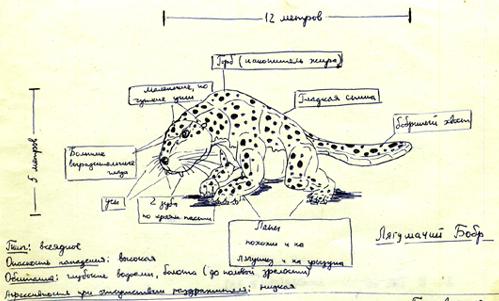 12 метров
Горб (накопитель жира)
маленькие, но
чуткие уши
Гладкая спина
бобриный хвост
5 метров
Большие
выразительные
глаза
усы
2 зуба
по краям пасти
Лапы
похожи и на
лягушку и на грызуна
Лягумачий Бобр
Тип: всеядное
Опасность нападения: высокая
Обитания: глубокие водоёмы, болота (до половой зрелости)
Агрессивность при отсутствии раздражителя: низкая